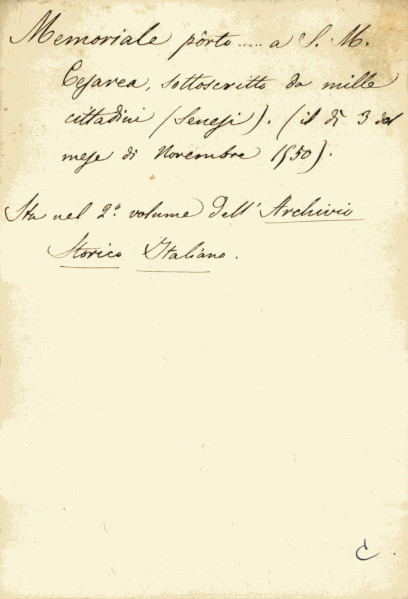 Memoriale pòrto ..... a S. M.
Cesarea, sottoscritto da mille
cittadini (Senesi). (il dì 3 del
mese di Novembre 1550).
Sta nel 2.° volume dell'Archivio
Storico Italiano.
C.